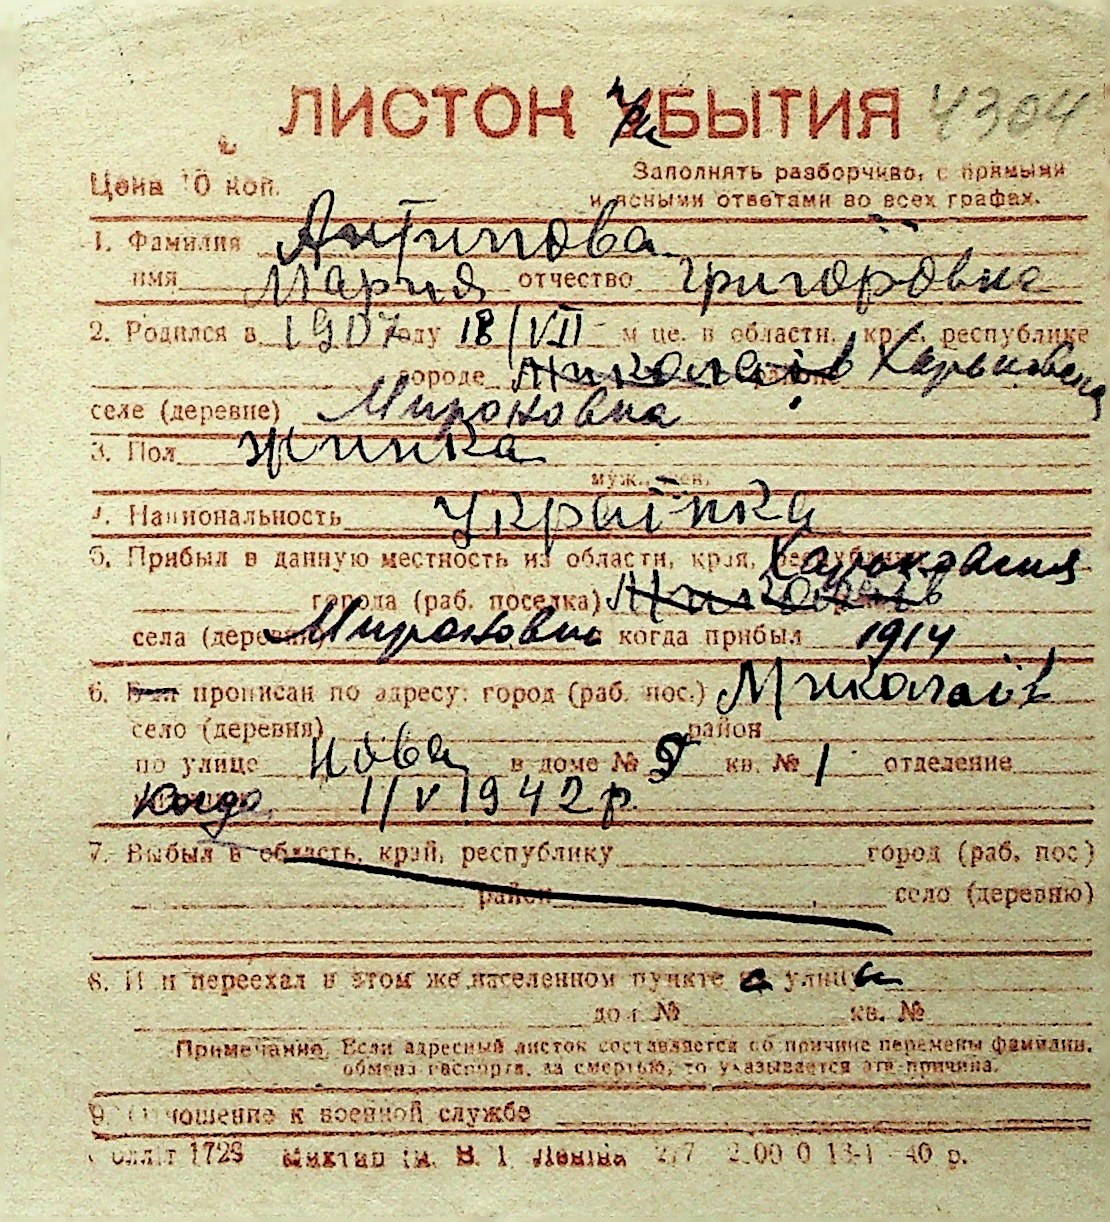 ЛИСТОК УБЫТИЯ 4304
Цена 10 коп.
Заполнять разборчиво, с прямыми
и ясными ответами во всех графах.
1. Фамилия Антипова
имя Мария отчество Григоровна
2. Родился в 1907 году 18/VII м-це, в области, крае, республике
городе Миколаїв районе Харьковская
селе (деревне) Мироновка
3. Пол жинка
муж., жен.
4. Национальность Українка
5. Прибыл в данную местность из области, края, республики Харьковския
города (раб. поселка) Миколаїв
села (деревни) Мироновки когда прибыл 1914
6. Был прописан по адресу: город (раб. пос.) Миколаїв
село (деревня) район
по улице Нова в доме № 5 кв. № 1 отделение
Когда 1/V 1942 р.
7. Выбыл в область, край, республику город (раб. пос)
район село (деревню)
8. Или переехал в этом же населенном пункте с улицы
дом № кв. №
Примечание. Если адресный листок составляется по причине перемены фамилии,
обмена паспорта, за смертью, то указывается эта причина.
9. Отношение к военной службе
1723 ім. В. І. Леніна 40 р.